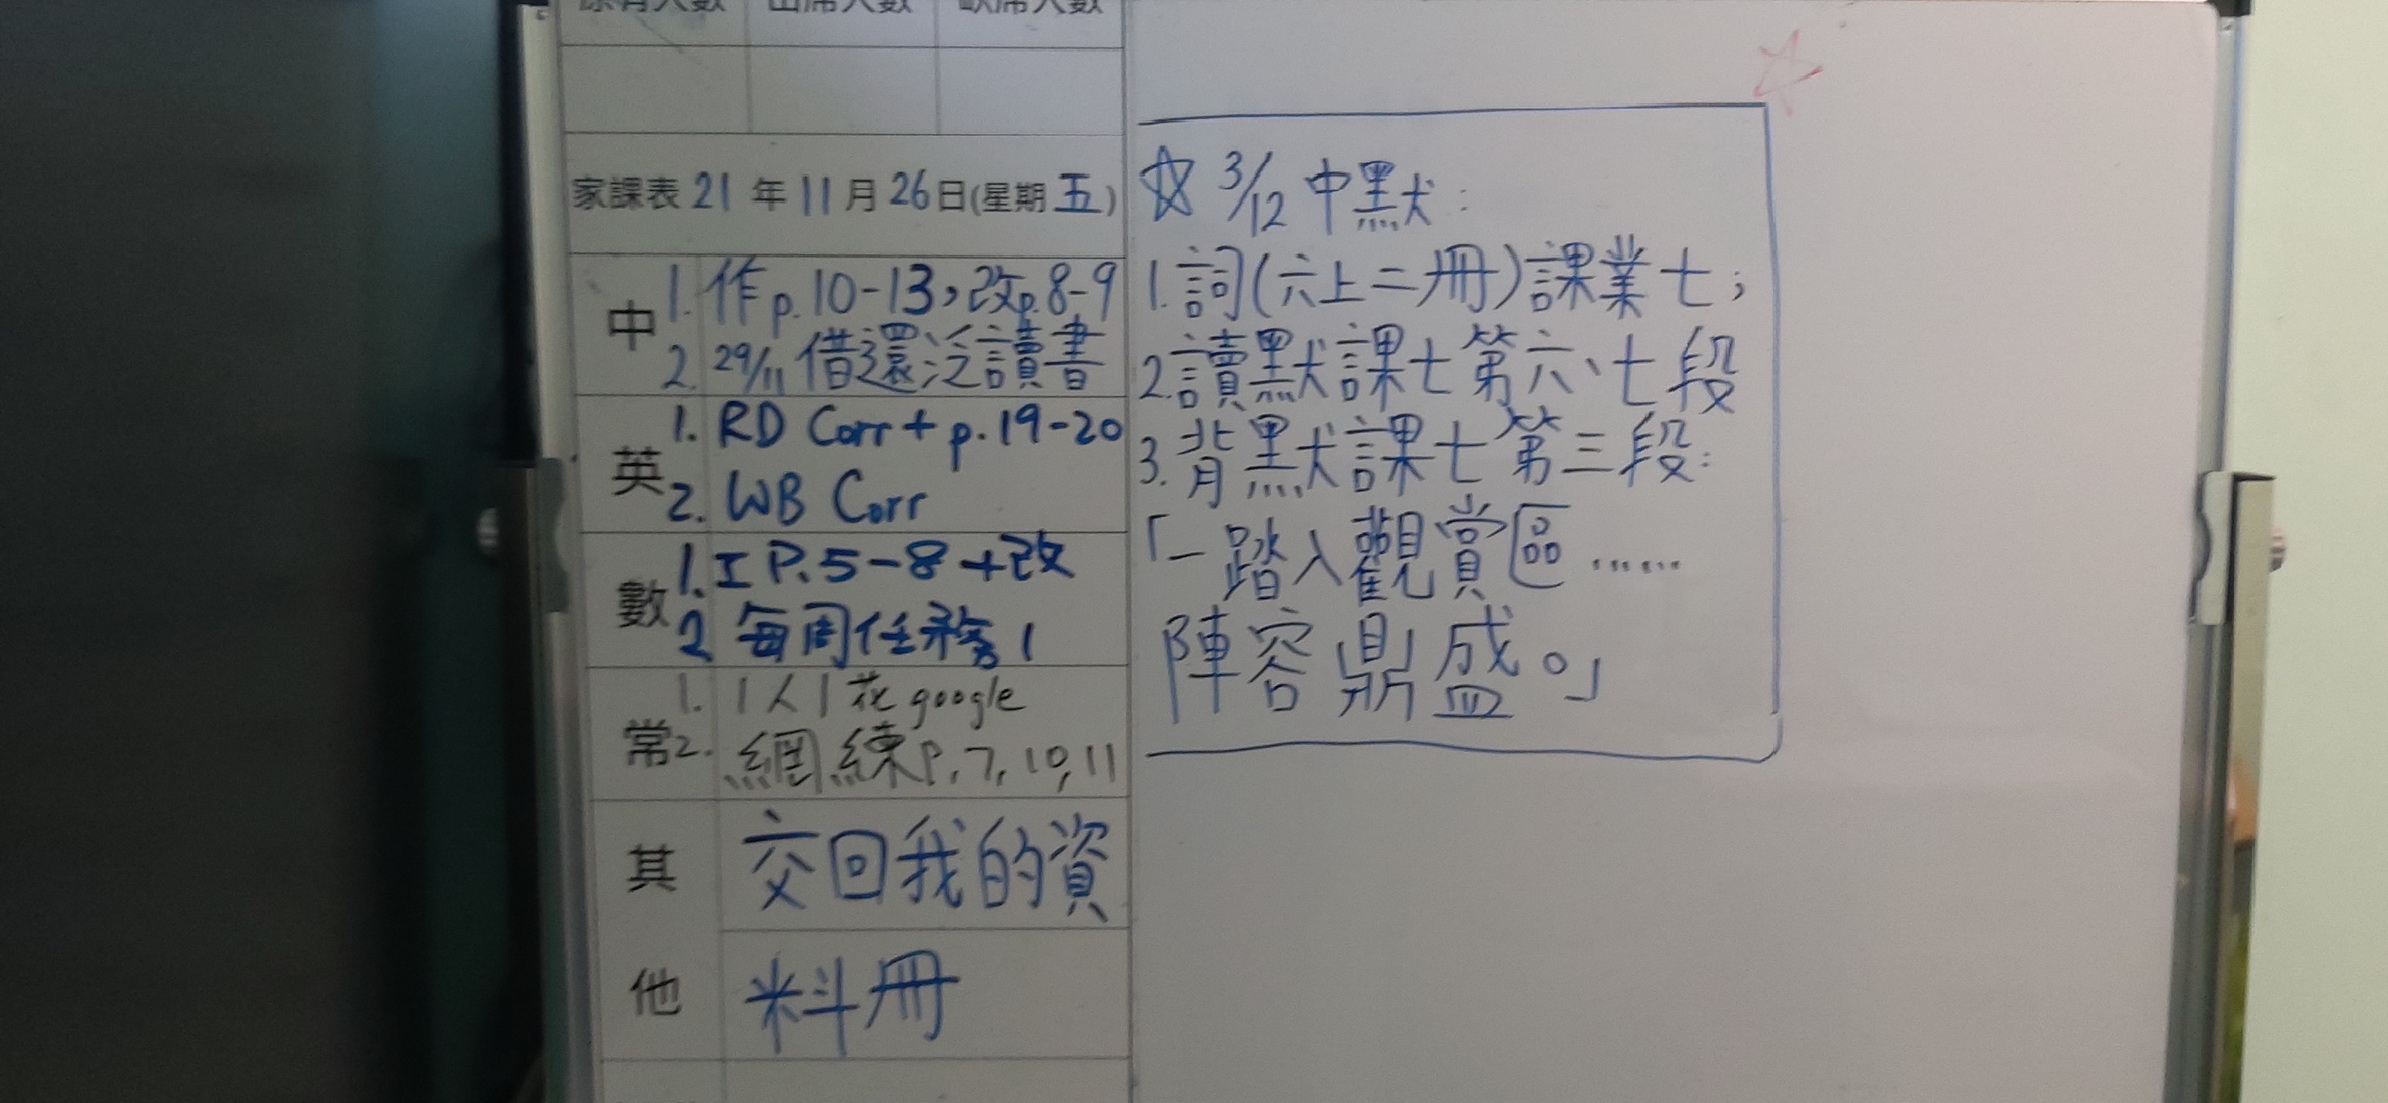 原有人數 出席人數 缺席人數
家課表 21 年 11 月 26 日(星期 五)
中
1. 作 p. 10-13，改p. 8-9
2. 29/11 借還泛讀書
英
1. RD Corr + p. 19-20
2. WB Corr
數
1. I P. 5-8 +改
2 每周任務 1
常
1. 1人1花 google
2. 網練P. 7, 10, 11
其他
交回我的資
料冊
☆ 3/12 中默：
1. 詞(六上二冊)課業七；
2. 讀默課七第六、七段
3. 背默課七第三段：
「一踏入觀賞區……
陣容鼎盛。」